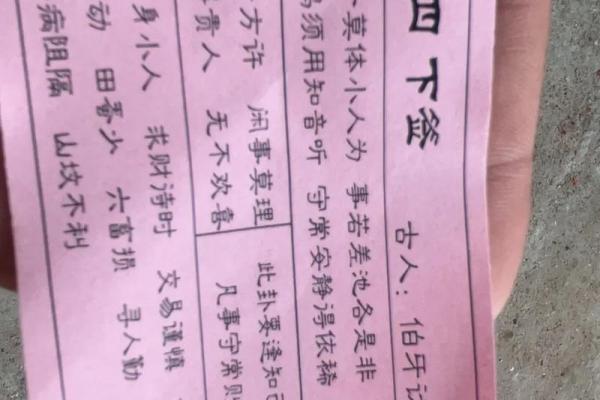 四 下签
古人：伯牙
莫体小人为 事若差池各是非
须用知音听 守常安静得依稀
方许 闲事莫理
贵人 无不欢喜
此卦要逢知己
凡事守常则
身小人 求财诗时 交易谨慎
动 田畨少 六畜损 寻人勤
病阻隔 山坟不利